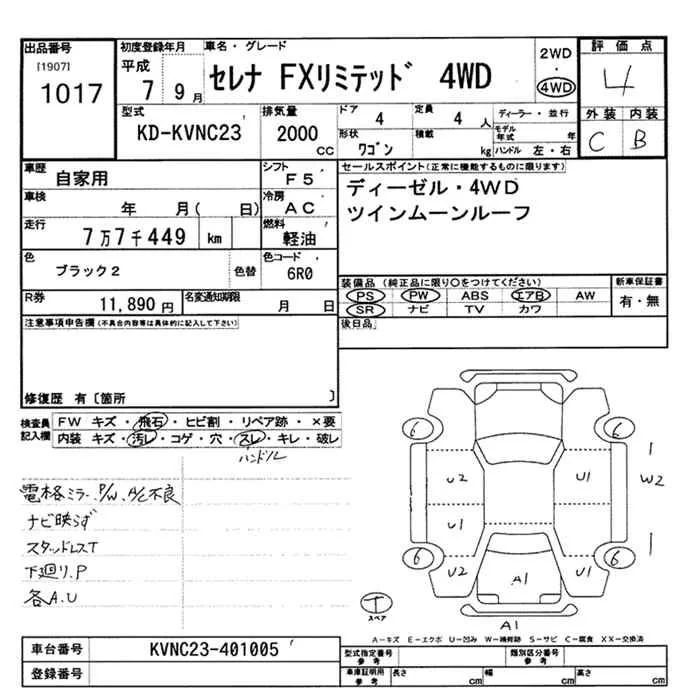 出品番号
[1907]
1017
初度登録年月
平成 7 9月
車名・グレード
セレナ FXリミテッド 4WD
2WD
・
4WD
評価点
4
型式
KD-KVNC23
排気量
2000 CC
ドア 4
定員 4 人
形状 ワゴン
積載 kg
ディーラー・並行
モデル年式 年
ハンドル 左・右
外装 内装
C B
車歴 自家用
シフト F5
車検 年 月( 日)
冷房 AC
走行 7万7千449 km
燃料 軽油
色 ブラック2 色替
色コード 6R0
R券 11,890円
名変通知期限 月 日
セールスポイント(正常に機能するものに限ります)
ディーゼル・4WD
ツインムーンルーフ
装備品(純正品に限り○をつけてください)
PS PW ABS エアB AW
SR ナビ TV カワ
新車保証書
有・無
後日品
注意事項申告欄(不具合内容等は具体的に記入して下さい)
修復歴 有〔箇所 〕
検査員記入欄
FW キズ・飛石・ヒビ割・リペア跡・×要
内装 キズ・汚レ・コゲ・穴・スレ・キレ・破レ
ハンドル
電格ミラー、P/W、A/C不良
ナビ映らず
スタッドレスT
下廻り、P
各A.U
6 6
U2 U1 W2
U1
6 6
U2 A1 U1
T
スペア
A1
A−キズ E−エクボ U−凹み W−補修跡 S−サビ C−腐食 XX−交換済
車台番号 KVNC23-401005
登録番号
型式指定番号 参考
類別区分番号 参考
車庫証明用 参考 長さ cm 幅 cm 高さ cm